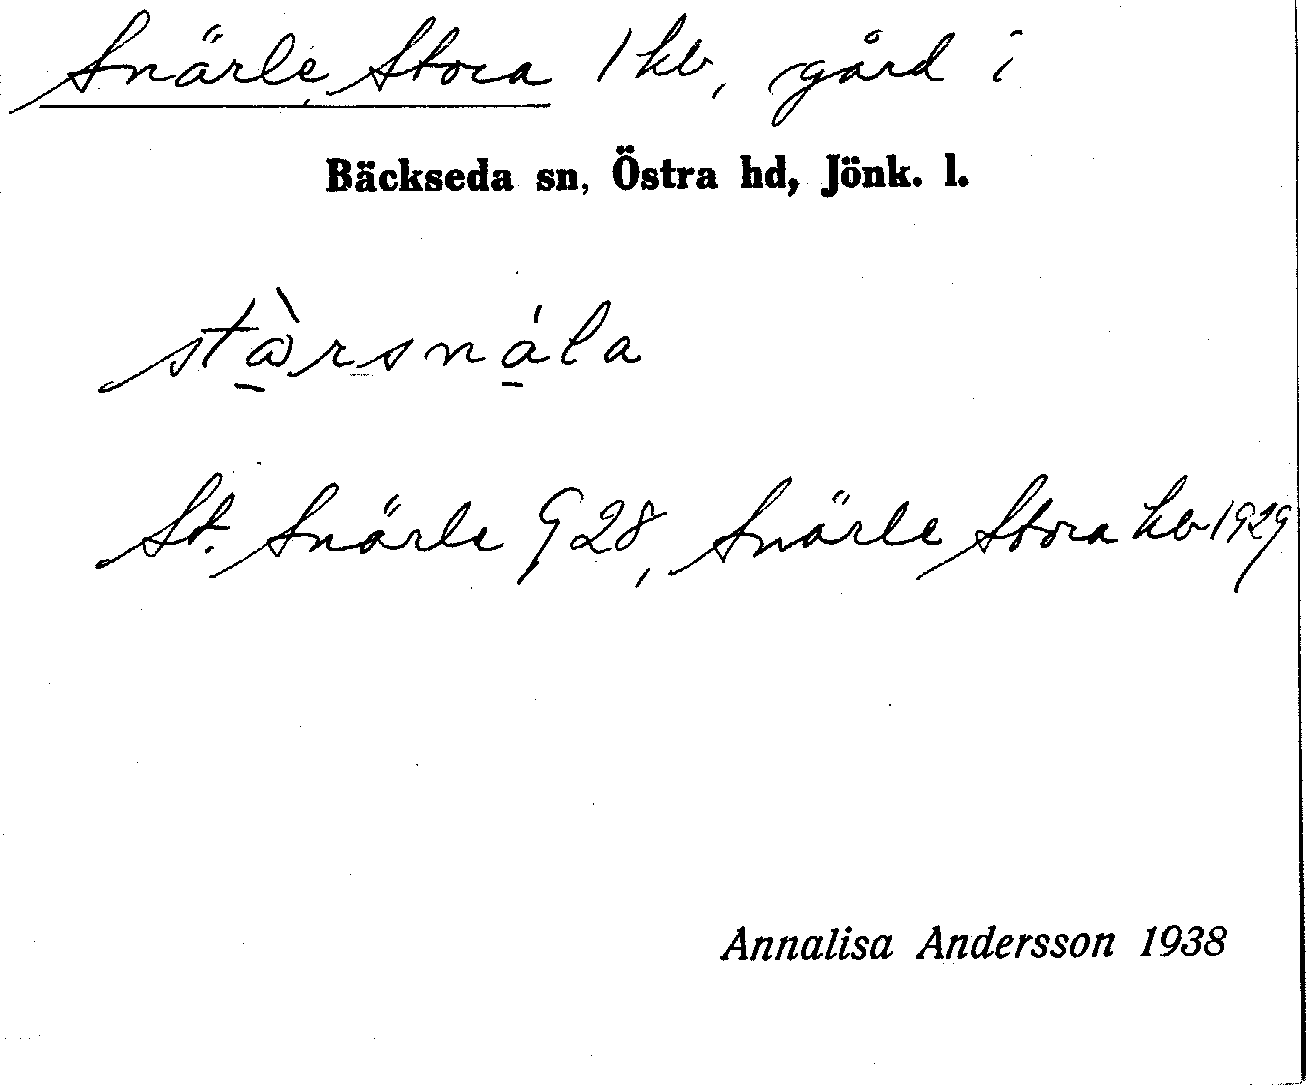 Snärle, Stora 1 hb, gård i
Bäckseda sn, Östra hd, Jönk. l.
stàrsnála
St. Snärle G 28, Snärle Stora hb 1929
Annalisa Andersson 1938